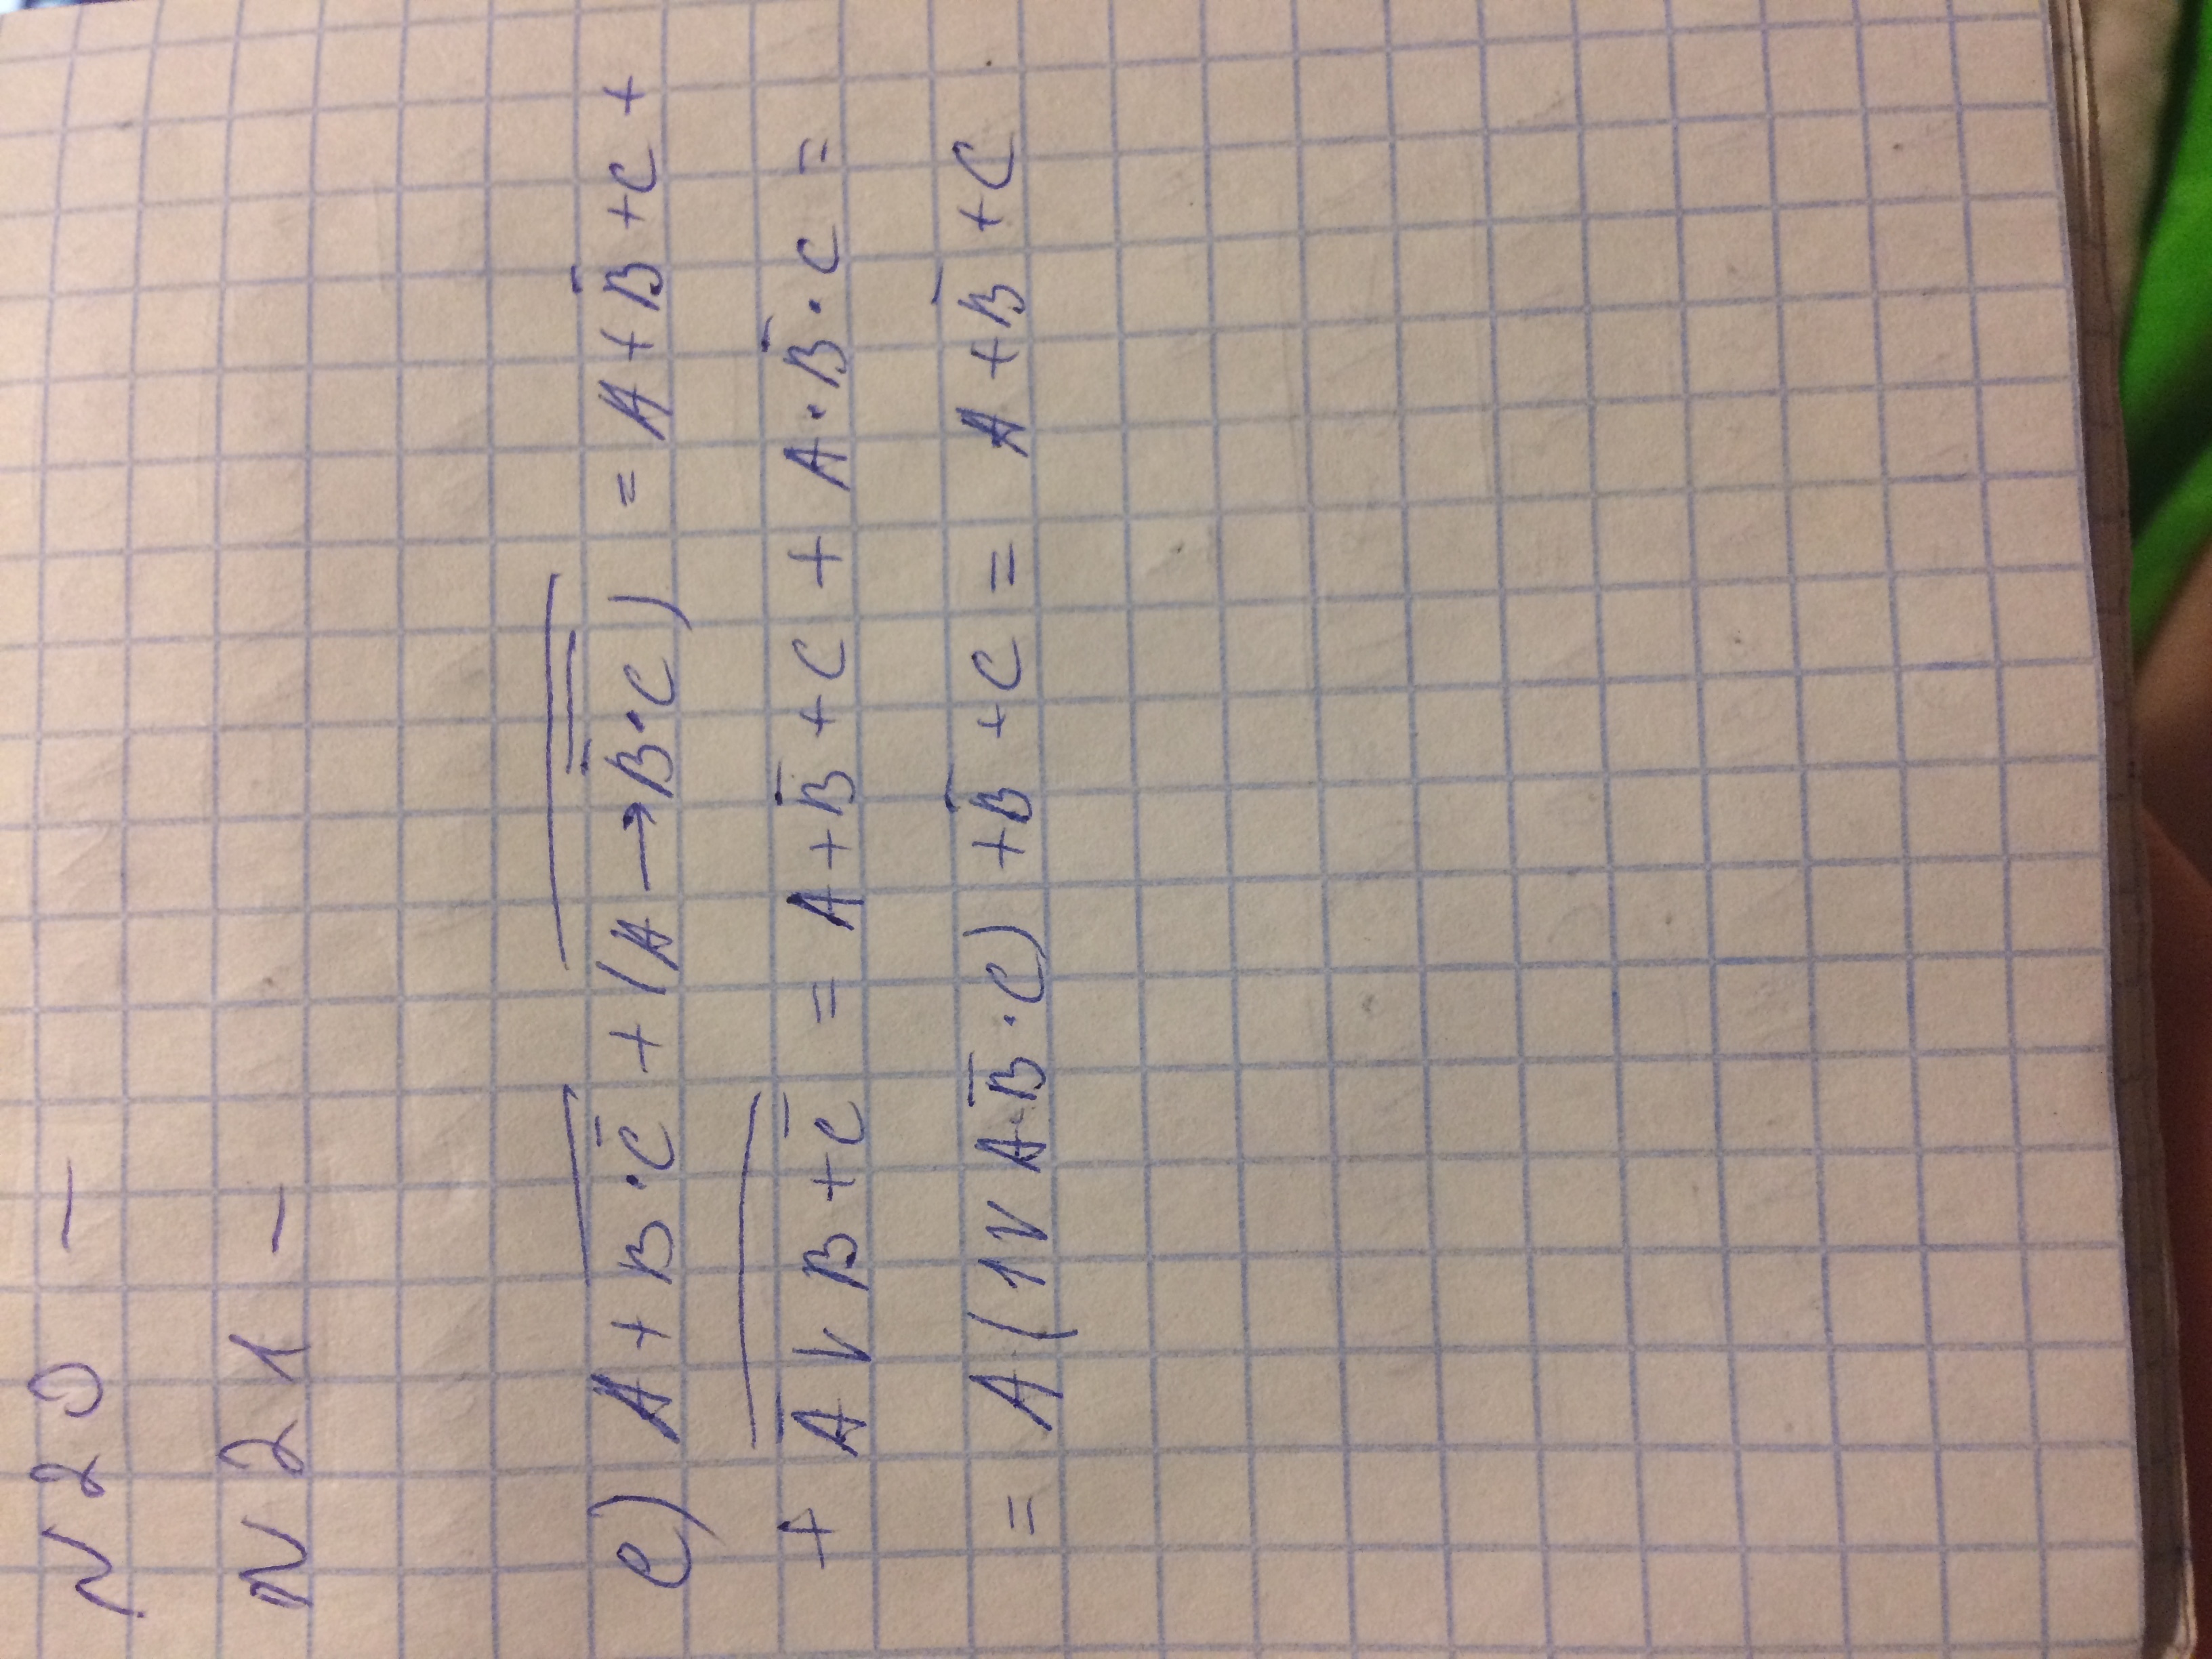 N 20 —
N 21 —
е) A + \overline{B·\overline{C}} + \overline{(A → \overline{\overline{B}·C})} = A + \overline{B} + C +
+ \overline{\overline{A} ∨ B + \overline{C}} = A + \overline{B} + C + A·\overline{B}·C =
= A(1 ∨ A\overline{B}·C) + \overline{B} + C = A + \overline{B} + C